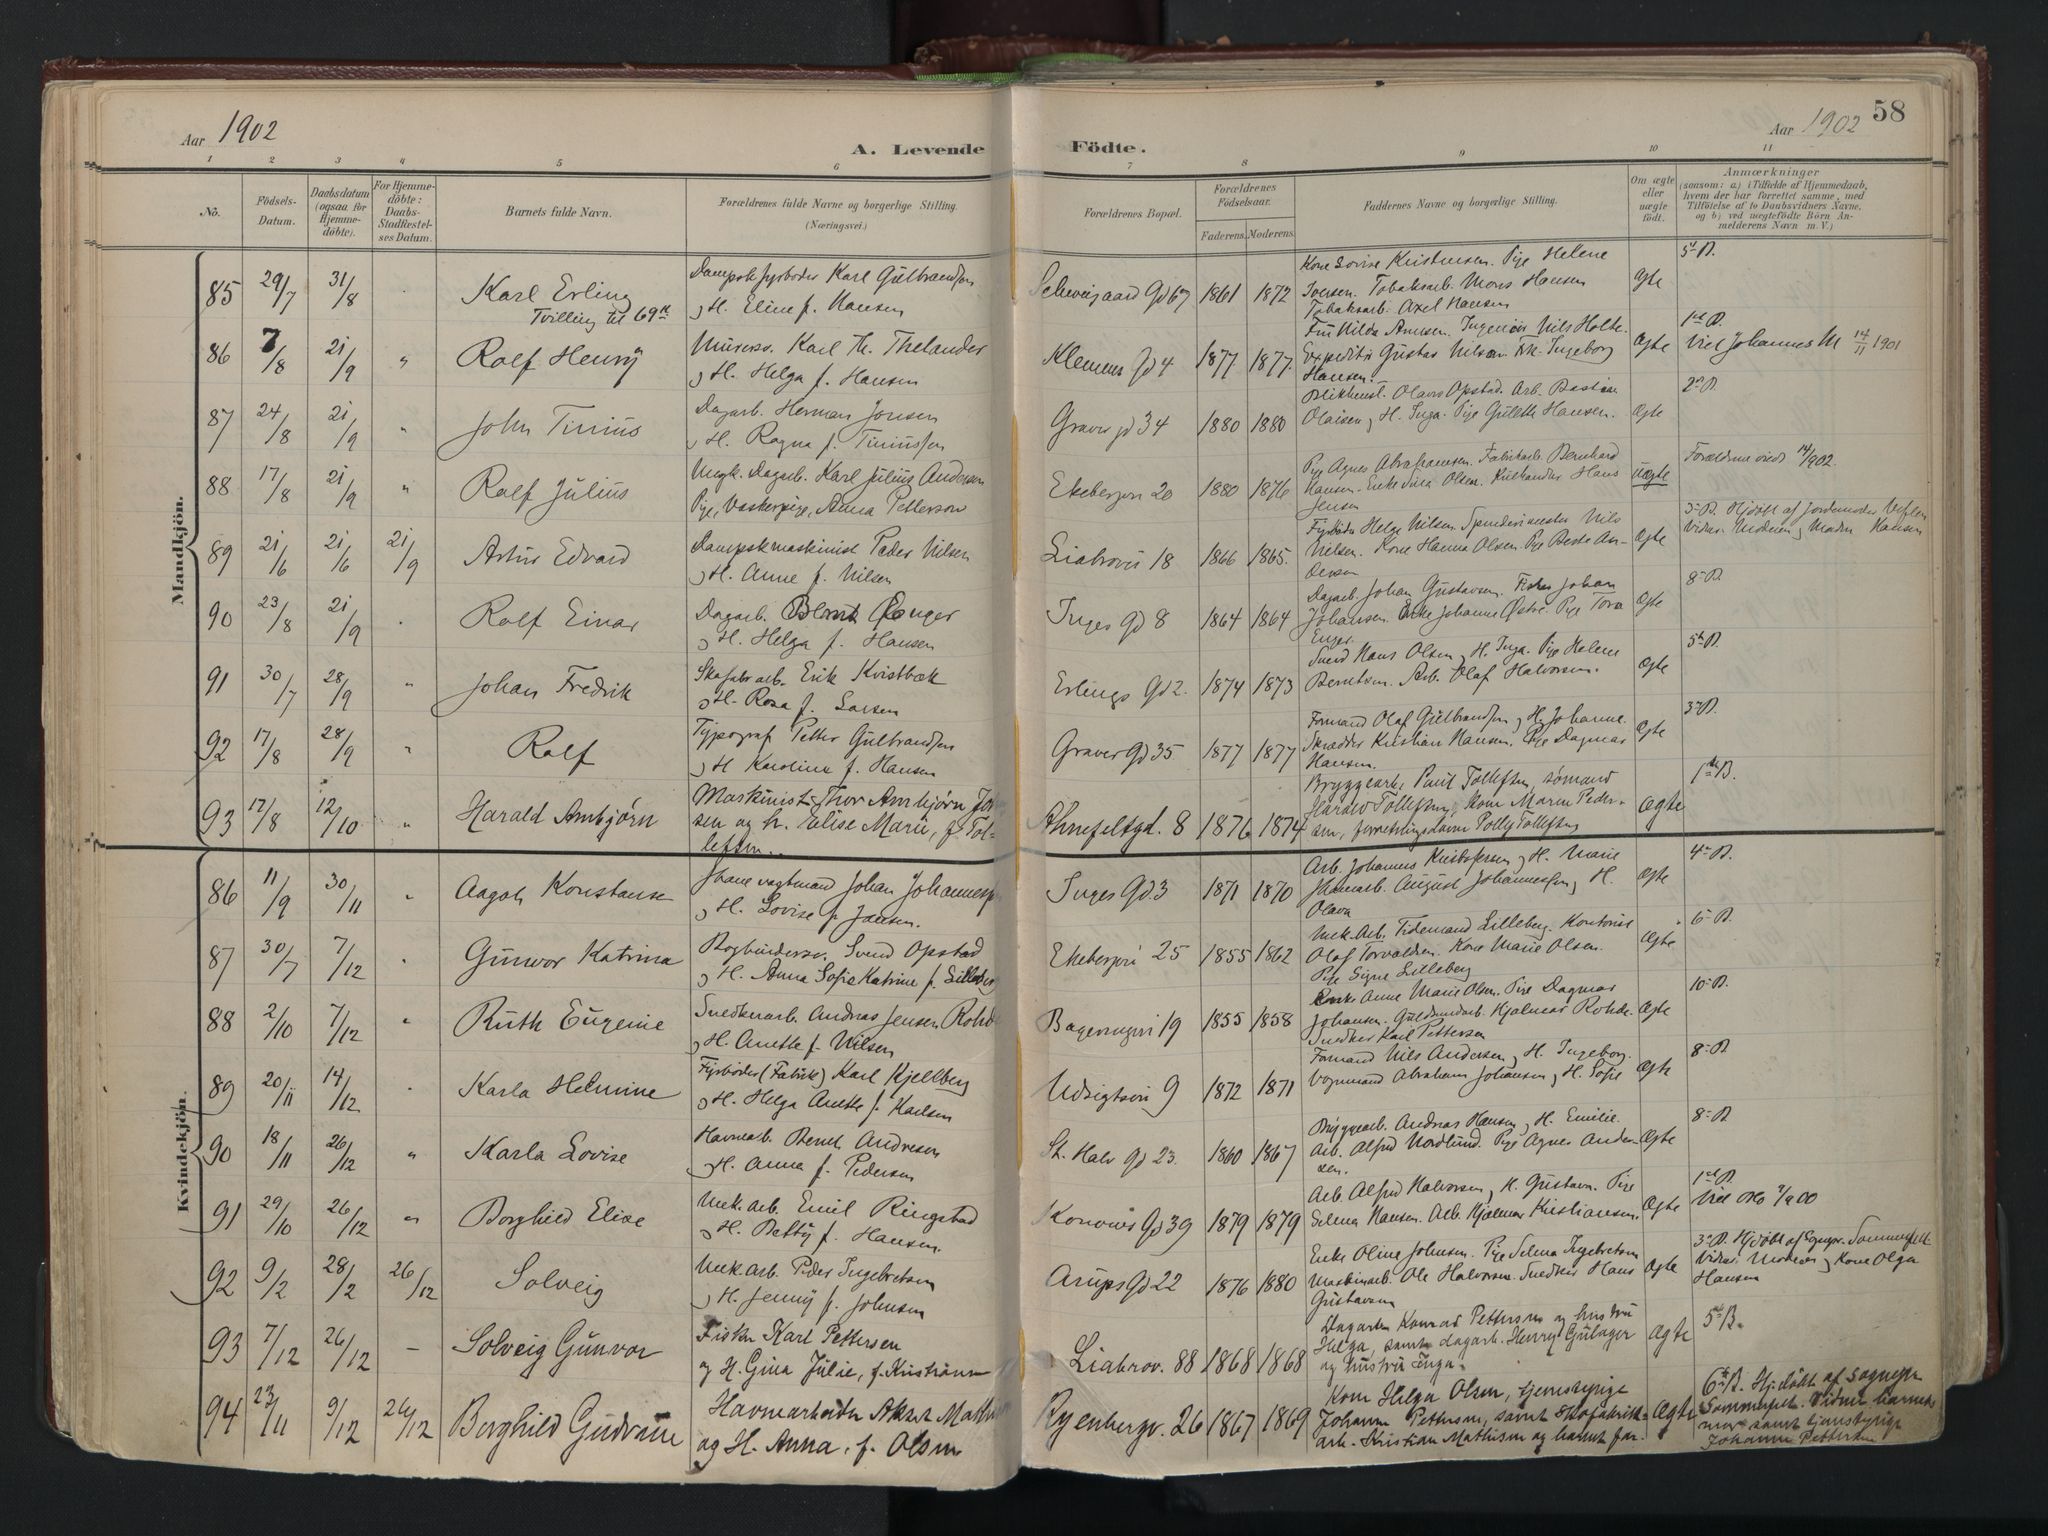 Aar 1902
A. Levende Födte.
Aar 1902
58
1 2 3 4 5 6 7 8 9 10 11
No.
Födsels-
Datum.
Daabsdatum
(ogsaa for
Hjemme-
döbte).
For Hjemme-
döbte:
Daabs-
Stadfæstel-
ses Datum.
Barnets fulde Navn.
Forældrenes fulde Navne og borgerlige Stilling.
(Næringsvei.)
Forældrenes Bopæl.
Forældrenes
Födselsaar.
Faderens. Moderens.
Faddernes Navne og borgerlige Stilling.
Om ægte
eller
uægte
födt.
Anmærkninger
(saasom: a) i Tilfælde af Hjemmedaab,
hvem der har forrettet samme, med
Tilföielse af to Daabsvidners Navne,
og b) ved uegtefödte Börn An-
melderens Navn m. V.)
Mandkjön.
85 29/7 31/8 Karl Erling
Tvilling til 69
Karl Gulbrandsen
H. Eline f. Hansen
Schweigaard Gd 67 1861 1872
Kone Lovise Kristensen. Pige Helene
Iversen. Tobaksarb. Mons Hansen
Tobaksarb. Axel Hansen
Ægte
5 B.
86 7/8 21/9 " Rolf Henry
Murersv. Karl Th. Thelander
H. Helga f. Hansen
Klemens Gd 4 1877 1877
Ingeniör Nils Holte.
Gustav Nilsen. Frk. Ingeborg
Hansen.
Ægte
1 B.
Viet Johannes M 14/11 1901
87 24/8 21/9 " John Tinius
Dagarb. Herman Jonsen
H. Ragna f. Tiniussen
Graver gd 34 1880 1880
Olavs Opstad. Arb. Bastian
Olaisen, H. Inga. Pige Gulette Hansen.
Ægte
2 B.
88 17/8 21/9 " Rolf Julius
Ungk. Dagarb. Karl Julius Andersen
Pige, Vaskepige, Anna Petterson
Ekebergvn 20 1880 1876
Pige Agnes Abrahamsen. Fabrikarb. Bernhard
Hansen. Enke Sina Olsen. Hans
Jensen
Uægte
Forældrene viede 14/ 902.
89 21/6 21/6 21/9 Artur Edvard
Dampskmaskinist Peder Nilsen
H. Anne f. Nilsen
Liabrovn 18 1866 1865.
Fyrböder Helge Nilsen. Nils
Nilsen. Kone Hanna Olsen. Pige Berte An-
dersen
Ægte
5 B. Hjdöbt af Jordemoder
Vidner Moderen, Madm Hansen
90 23/8 21/9 Rolf Einar
Dagarb. Bernt Enger
H. Helga f. Hansen
Inges Gd 8 1864 1864
Dagarb. Johan Gustavsen. Fisker Johan
Johansen. Enke Johanne Østre. Pige Tora
Enger
Ægte
8 B.
91 30/7 28/9 " Johan Fredrik
Skofabarb. Erik Kvistbæk
H. Rosa f. Larsen
Erlings Gd 2. 1874 1873
Svend Hans Olsen, H. Inga. Pige Helene
Berntsen. Arb. Olaf Halvorsen.
Ægte
5 B.
92 17/8 28/9 " Rolf
Typograf Petter Gulbrandsen
H Karoline f. Hansen
Graver Gd 35 1877 1877
Formand Olaf Gulbrandsen, H. Johanne.
Skrædder Kristian Hansen. Pige Dagmar
Hansen.
Ægte
3 B.
93 17/8 12/10 " Harald Arnbjørn
Maskinist Thor Arnbjørn Joh
sen og h. Elise Marie, f. Tol-
lefsen.
Ahnefeltgd. 8 1876 1874
Bryggearb. Paul Tollefsen, sömand
Harald Tollefsen, kone Maren Peder-
sen, forretningsdame Polly Tollefsen
Ægte
1 B.
Kvindekjön.
86 11/9 30/11 " Aagot Konstanse
Johan Johannessen
H. Lovise f. Jansen.
Inges Gd. 3 1871 1870
Arb. Johannes Kristofersen, H. Marie
August Johannessen, H.
Olava
Ægte
4 B.
87 30/7 7/12 " Gunvor Katrina
Bogbindersv. Svend Opstad
H. Anna Sofie Katrine f. Lilleberg
Ekebergvn 25 1855 1862
Mek. Arb. Tidemand Lilleberg. Kontorist
Olaf Torvaldsen. Kone Marie Olsen.
Pige Signe Lilleberg
Ægte
6 B.
88 2/10 7/12 " Ruth Eugenie
Snedkerarb. Andreas Jensen Rohde
H. Anette f. Nilsen
19 1855 1858
Enke Anne Marie Olsen. Pige Dagmar
Johansen. Guldsmedarb. Hjalmar Rohde.
Snedker Karl Pettersen
Ægte
10 B.
89 20/11 14/12 " Karla Helmine
Fyrböder (Fabrik) Karl Kjellberg
H. Helga Anette f. Karlsen
Udsigtsvn 9 1872 1871
Formand Nils Andersen, H. Ingeborg.
Vognmand Abraham Johansen, H. Sofie
Ægte
8 B
90 18/11 26/12 " Karla Lovise
Havnearb. Bernt Andresen
H. Anna f. Pedersen
St. Halv Gd 23. 1860 1867
Bryggearb. Andreas Hansen, H. Emilie.
Arb. Alfred Nordlund. Pige Agnes Ander-
sen.
Ægte
8 B
91 29/10 26/12 " Borghild Elise
Mek. Arb. Emil Ringstad
H. Betty f. Hansen.
Konows Gd 39 1879 1879
Arb. Alfred Halvorsen, H. Gustava. Pige
Selma Hansen. Arb. Hjalmar Kristiansen.
Ægte
1 B.
Viet Oslo 00
92 9/2 28/2 26/12 Solveig
Mek. arb. Peder Ingebretsen
H. Jenny f. Johnsen
Arups Gd 22 1876 1880
Enke Oline Johnsen. Pige Selma Ingebretsen
Maskinarb. Ole Halvorsen. Snedker Hans
Gustavsen
Ægte
3 B. Hjdöbt af Sognepr. Sommerfelt
Vidner Moderen, Kone Olga
Hansen
93 7/12 26/12 — Solveig Gunvor
Fisker Karl Pettersen
og H. Gina Julie, f. Kristiansen
Liabrov. 88 1868 1868
Dagarb. Konrad Pettersen og hustru
Helga, samt dagarb. Henry Gulager
og hustru Inga.
Ægte
5 B.
94 23/11 9/12 26/12 Borghild Gudrun
Havnearbeider Aksel Math
og H. Anna, f. Olsen
Ryenbergv. 26 1867 1869
Kone Helga Olsen, tjenestepige
Johanne Pettersen, samt skofabrikk-
arb. Kristian Mathisen og barnets far.
Ægte
6 B. Hjdöbt af sognepr
Sommerfelt. Vidner barnets
mor samt tjenstepige
Johanne Pettersen